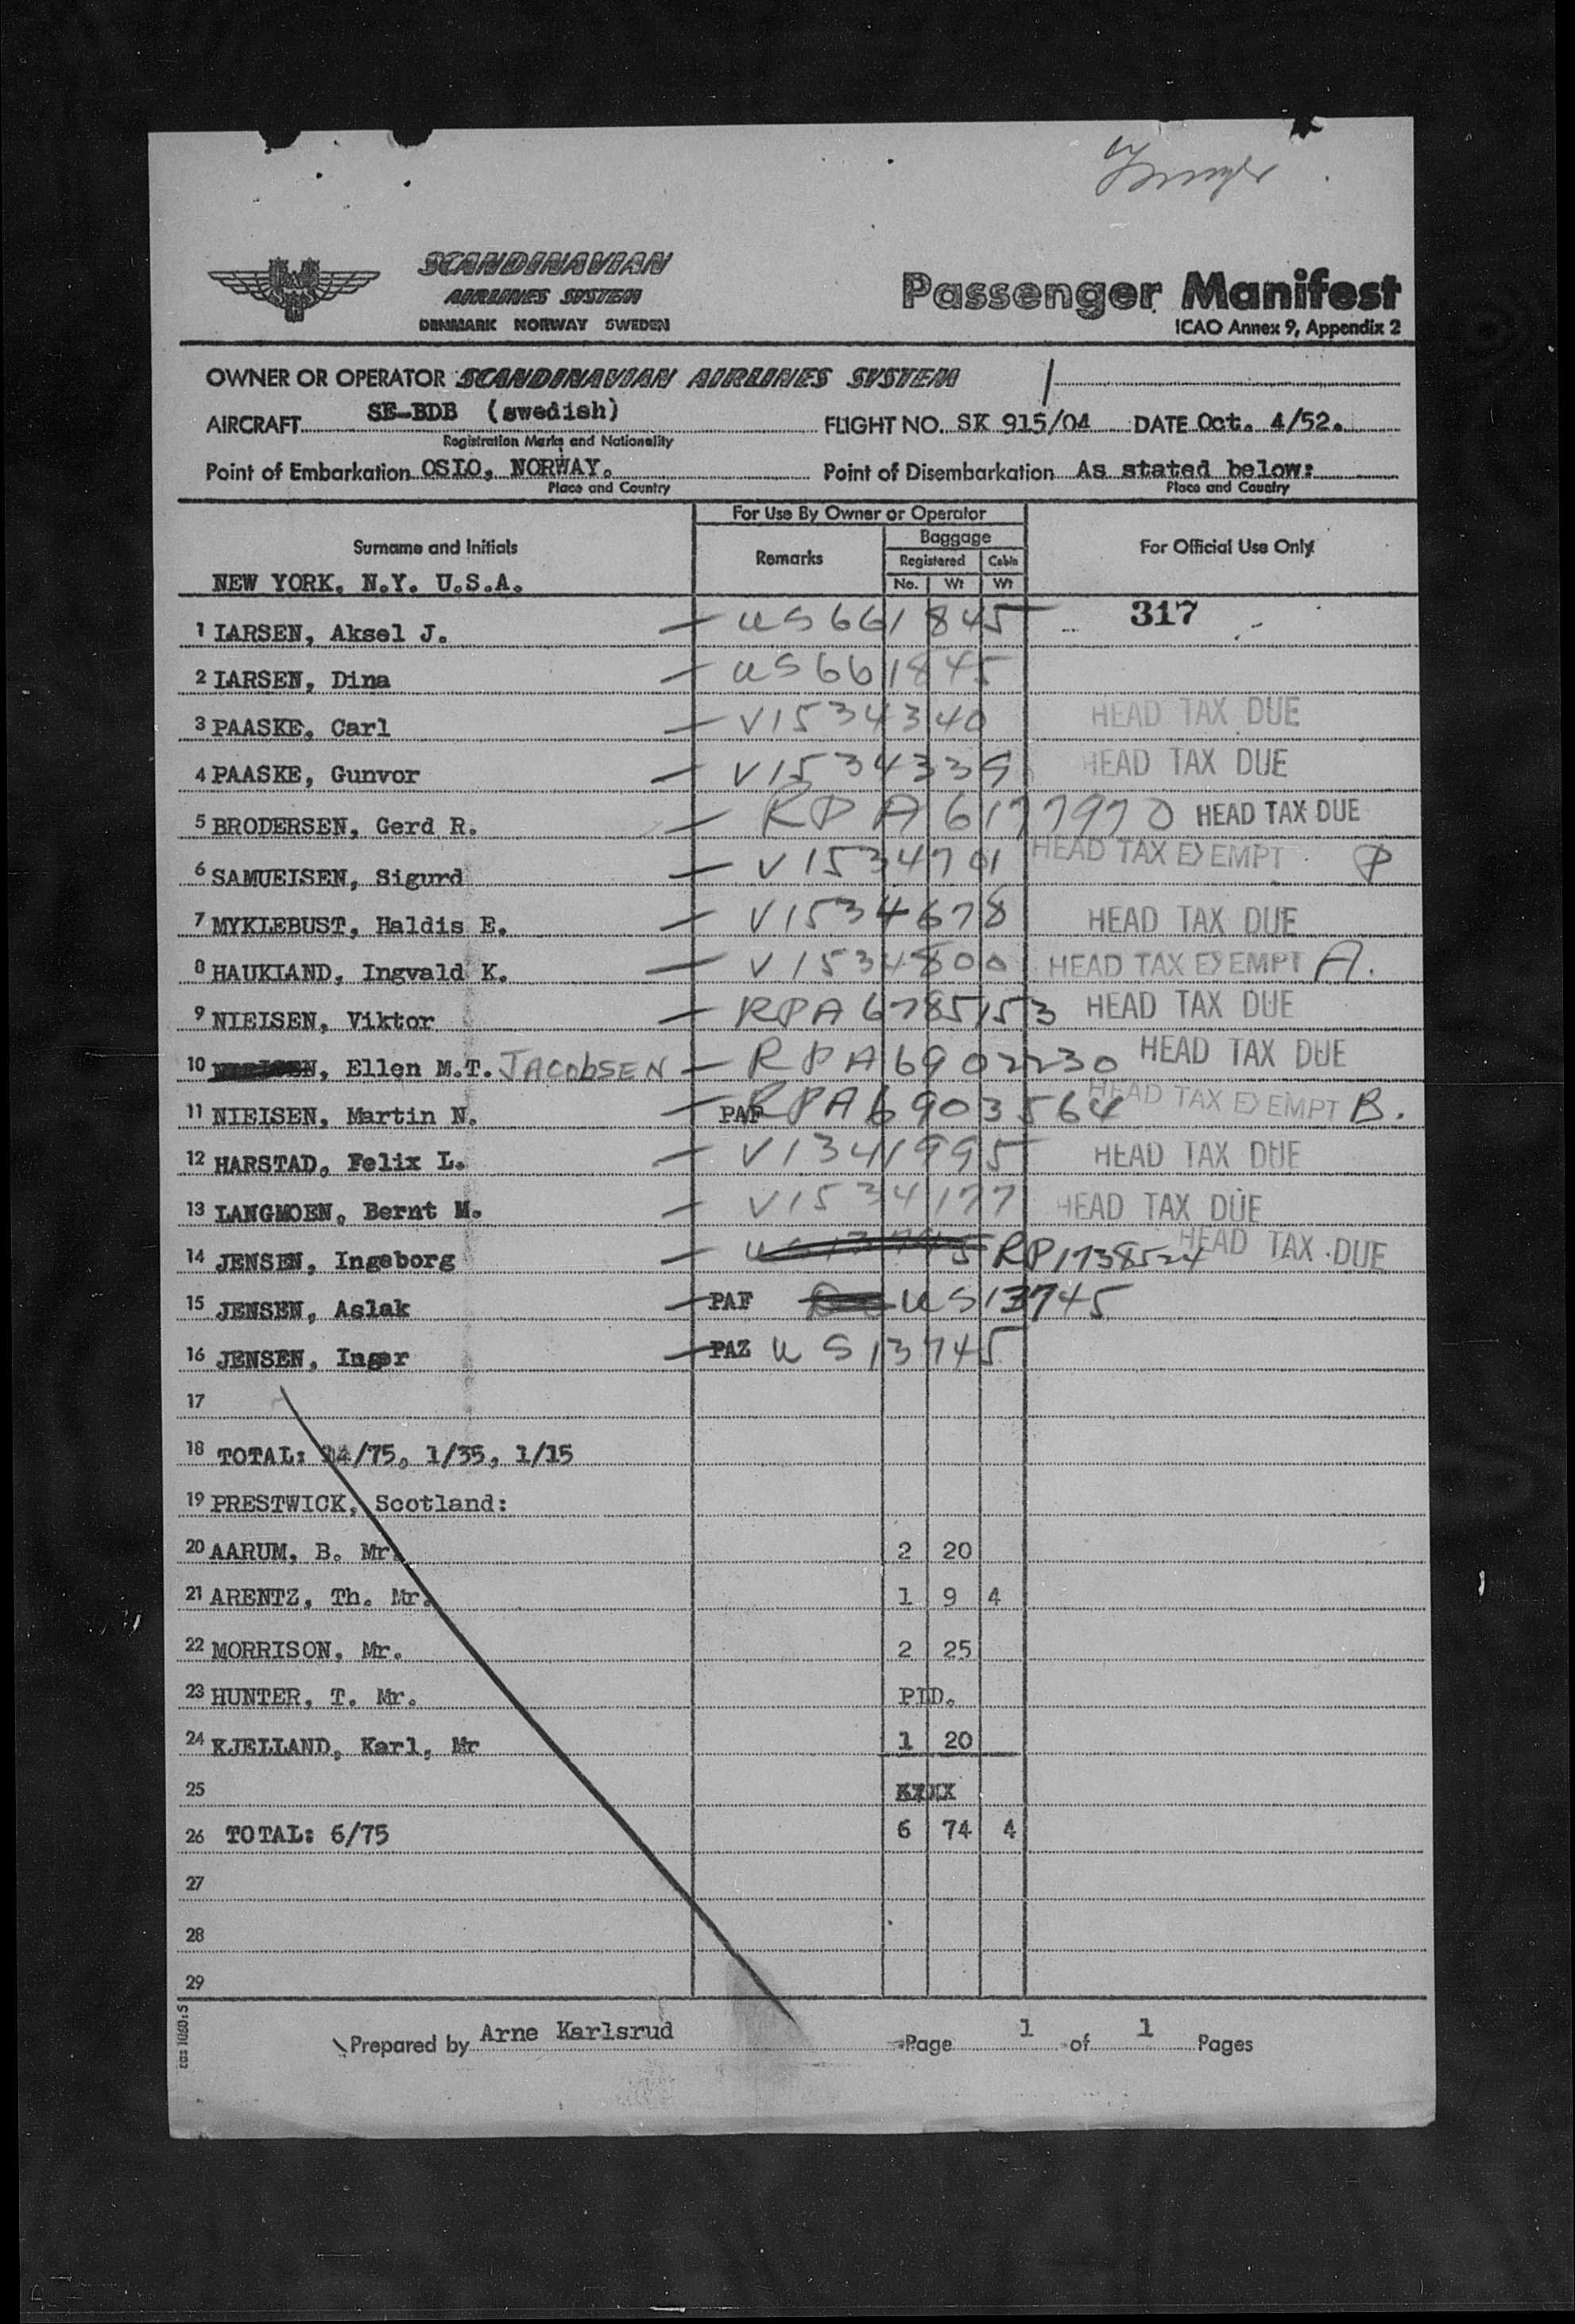 SCANDINAVIAN
AIRLINES SYSTEM
DENMARK NORWAY SWEDEN
Passenger Manifest
ICAO Annex 9, Appendix 2
OWNER OR OPERATOR SCANDINAVIAN AIRLINES SYSTEM
AIRCRAFT SE-BDB (swedish) FLIGHT NO. SK 915/04 DATE Oct. 4/52.
Registration Marks and Nationality
Point of Embarkation OSLO, NORWAY. Point of Disembarkation As stated below:
Place and Country Place and Country
For Use By Owner or Operator
Surname and Initials Remarks Baggage For Official Use Only
Registered Cabin
NEW YORK, N.Y. U.S.A. No. Wt Wt
1 LARSEN, Aksel J. — US661845 317
2 LARSEN, Dina — US661845
3 PAASKE, Carl — V1534340 HEAD TAX DUE
4 PAASKE, Gunvor — V1534339 HEAD TAX DUE
5 BRODERSEN, Gerd R. — RPA6177970 HEAD TAX DUE
6 SAMUELSEN, Sigurd — V1534701 HEAD TAX EXEMPT P
7 MYKLEBUST, Haldis E. — V1534678 HEAD TAX DUE
8 HAUKLAND, Ingvald K. — V1534800 HEAD TAX EXEMPT A.
9 NIELSEN, Viktor — RPA6785153 HEAD TAX DUE
10 , Ellen M.T. JACObSEN — RPA6902230 HEAD TAX DUE
11 NIELSEN, Martin N. — PAF RPA6903564 HEAD TAX EXEMPT B.
12 HARSTAD, Felix L. — V1341995 HEAD TAX DUE
13 LANGMOEN, Bernt M. — V1534177 HEAD TAX DUE
14 JENSEN, Ingeborg — US13745 RP1738524 HEAD TAX DUE
15 JENSEN, Aslak — PAF US13745
16 JENSEN, Inger — PAZ US13745
17
18 TOTAL: 14/75, 1/35, 1/15
19 PRESTWICK, Scotland:
20 AARUM, B. Mr. 2 20
21 ARENTZ, Th. Mr. 1 9 4
22 MORRISON, Mr. 2 25
23 HUNTER, T. Mr. PLD.
24 KJELLAND, Karl, Mr 1 20
25
26 TOTAL: 6/75 6 74 4
27
28
29
Prepared by Arne Karlsrud Page 1 of 1 Pages